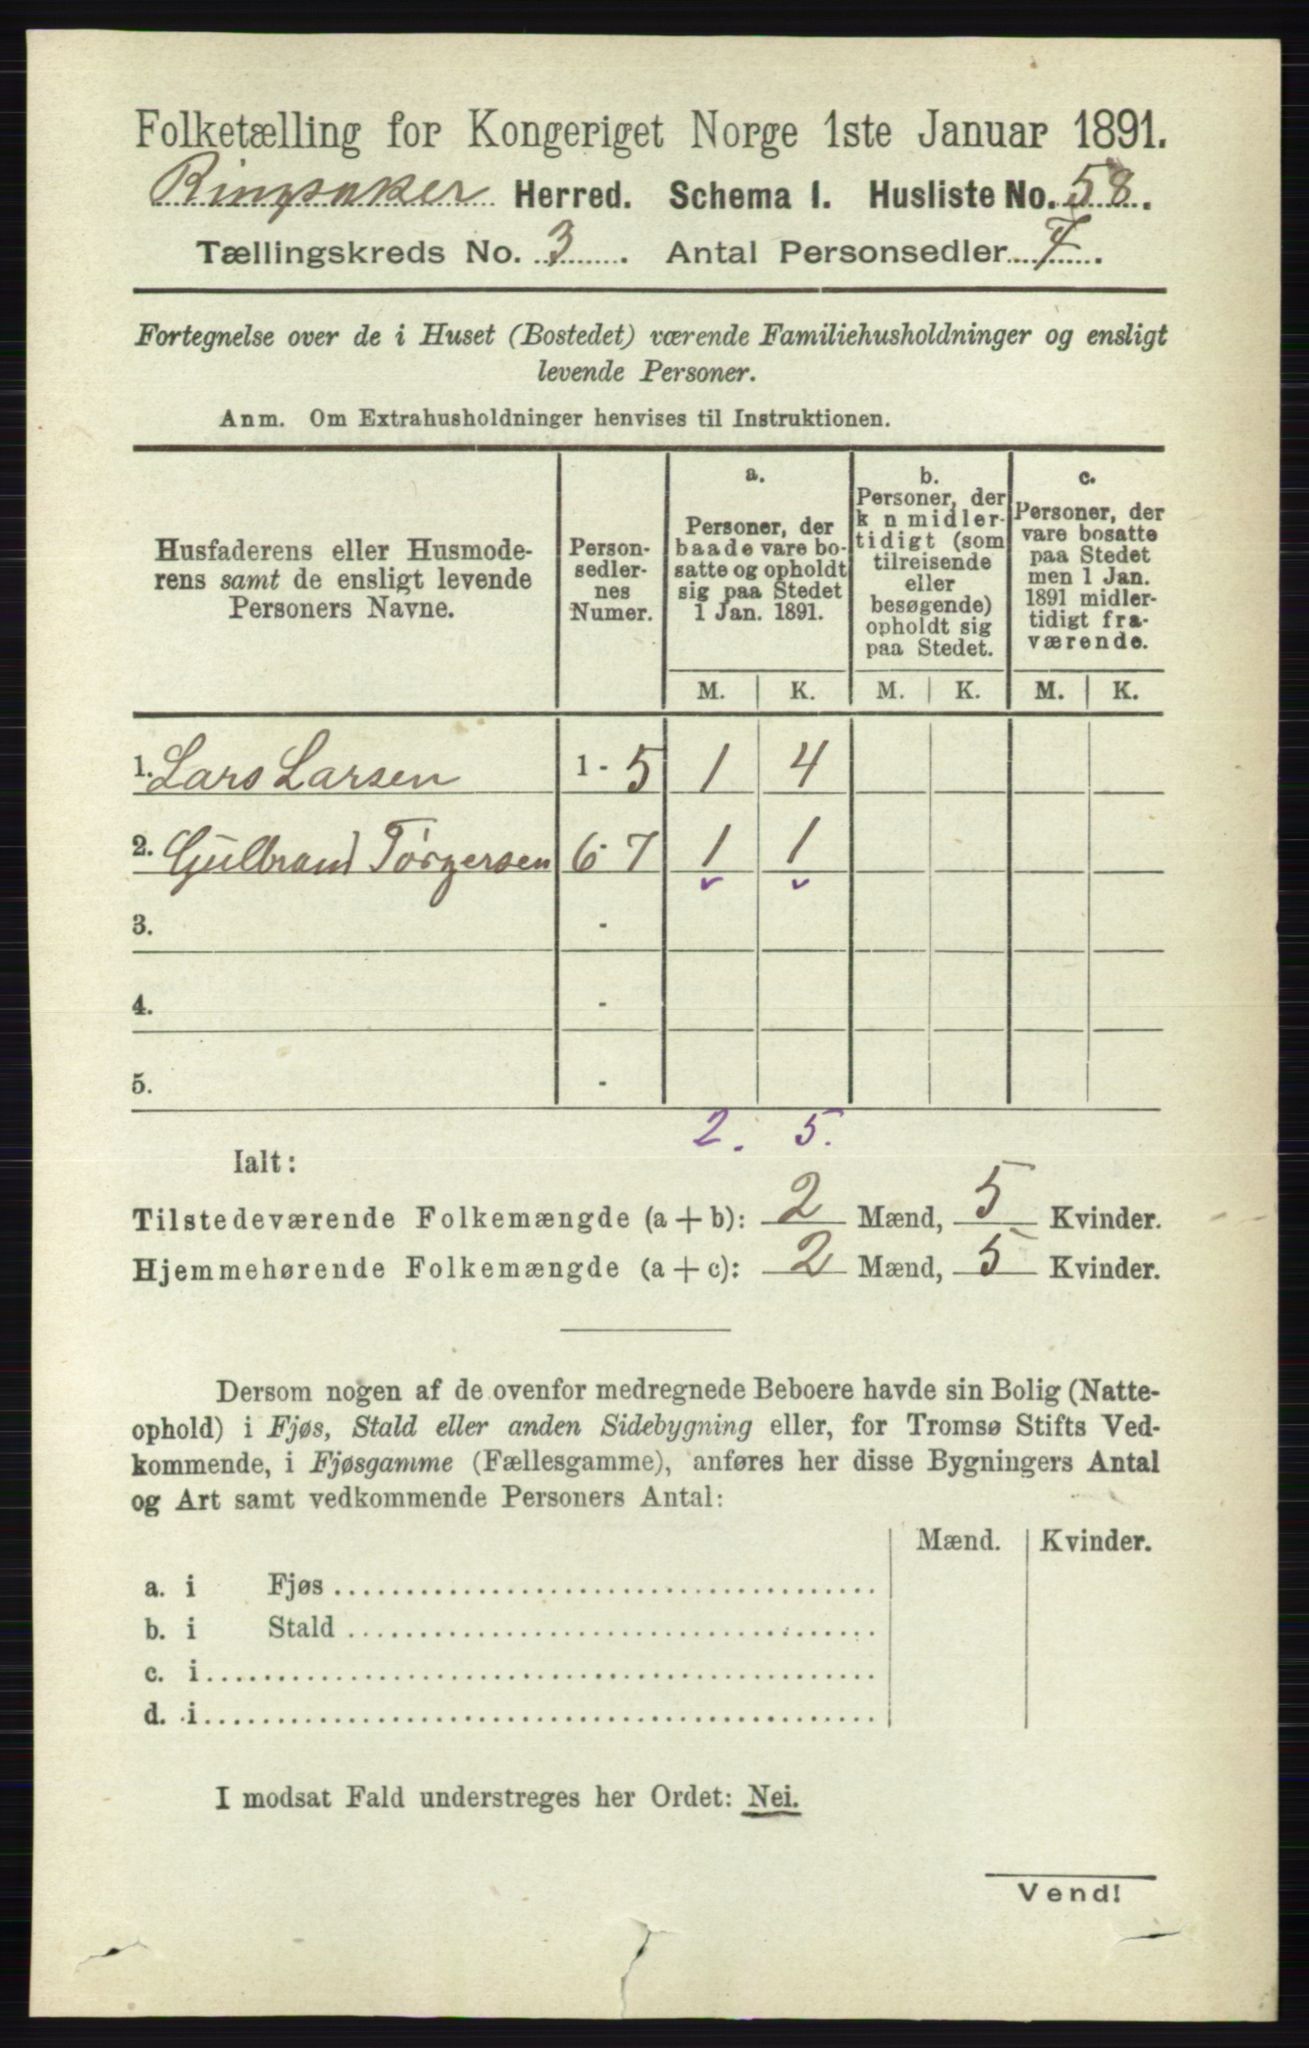 Folketælling for Kongeriget Norge 1ste Januar 1891.
Ringsaker Herred. Schema I. Husliste No. 58.
Tællingskreds No. 3. Antal Personsedler 7.
Fortegnelse over de i Huset (Bostedet) værende Familiehusholdninger og ensligt
levende Personer.
Anm. Om Extrahusholdninger henvises til Instruktionen.
Husfaderens eller Husmode-
rens samt de ensligt levende
Personers Navne.
Person-
sedler-
nes
Numer.
a.
Personer, der
baade vare bo-
satte og opholdt
sig paa Stedet
1 Jan. 1891.
b.
Personer, der
k n midler-
tidigt (som
tilreisende
eller
besøgende)
opholdt sig
paa Stedet.
c.
Personer, der
vare bosatte
paa Stedet
men 1 Jan.
1891 midler-
tidigt fra-
værende.
M. K. M. K. M. K.
1. Lars Larsen 1 - 5 1 4
2. Gulbrand Torgersen 6 - 7 1 1
3. -
4. -
5. -
2. 5.
Ialt:
Tilstedeværende Folkemængde (a + b): 2 Mænd, 5 Kvinder.
Hjemmehørende Folkemængde (a + c): 2 Mænd, 5 Kvinder.
Dersom nogen af de ovenfor medregnede Beboere havde sin Bolig (Natte-
ophold) i Fjøs, Stald eller anden Sidebygning eller, for Tromsø Stifts Ved-
kommende, i Fjøsgamme (Fællesgamme), anføres her disse Bygningers Antal
og Art samt vedkommende Personers Antal:
Mænd. Kvinder.
a. i Fjøs
b. i Stald
c. i
d. i
I modsat Fald understreges her Ordet: Nei.
Vend!